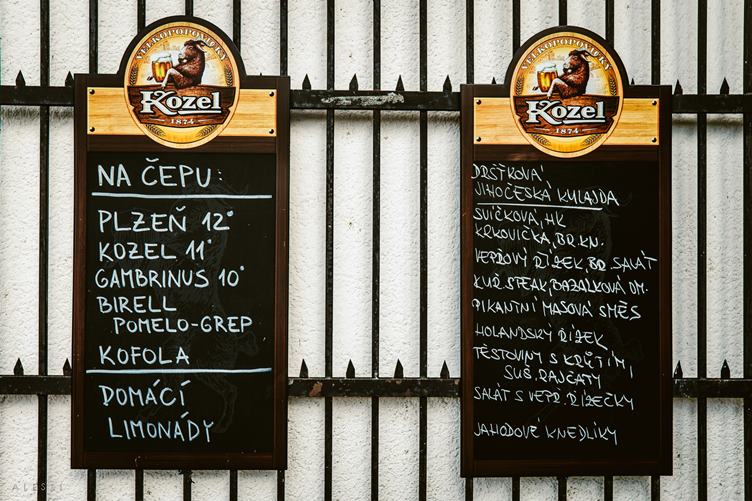 VELKOPOPOVICKÝ
Kozel
1874
NA ČEPU:
PLZEŇ 12°
KOZEL 11°
GAMBRINUS 10°
BIRELL
POMELO-GREP
KOFOLA
DOMÁCÍ
LIMONÁDY
VELKOPOPOVICKÝ
Kozel
1874
DRŠŤKOVÁ
JIHOČESKÁ KULAJDA
SVÍČKOVÁ, HK
KRKOVIČKA, BR. KN.
VEPŘOVÝ ŘÍZEK, BR. SALÁT
KUŘ. STEAK, BAZALKOVÁ OM.
PIKANTNÍ MASOVÁ SMĚS
HOLANDSKÝ ŘÍZEK
TĚSTOVINY S KRŮTÍM,
SUŠ. RAJČATY
SALÁT S VEPŘ. ŘÍZEČKY
JAHODOVÉ KNEDLÍKY